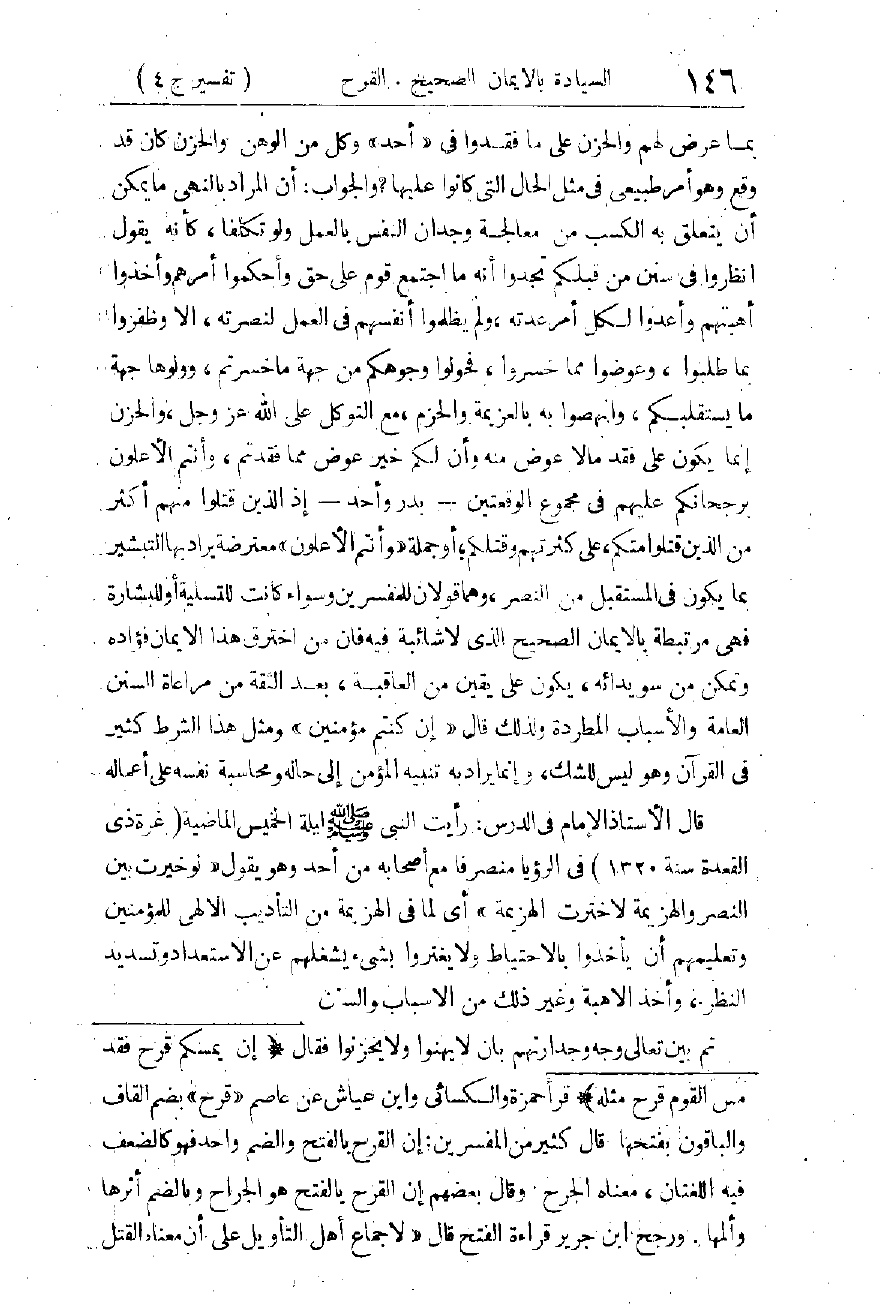 ١٤٦ السيادة بالايمان الصحيح . القرح ( تفسير ج ٤ )
بمـا عرض لهم والحزن على ما فقـدوا فى « أحد» وكل من الوهن والحزن كان قد
وقع وهو أمر طبيعى فى مثل الحال التى كانوا عليها ؟ والجواب : أن المراد بالنهى ما يمكن
أن يتعلق به الكسب من معالجة وجدان النفس بالعمل ولو تكلفا ، كأنه يقول
انظروا فى سنن من قبلكم تجدوا أنه ما اجتمع قوم على حق وأحكموا أمرهم وأخذوا
أهبتهم وأعدوا لـكل أمر عدته ، ولم يظلموا أنفسهم فى العمل لنصرته ، الا وظفروا
بما طلبوا ، وعوضوا مما خسروا ، فحولوا وجوهكم من جهة ما خسرتم ، وولوها جهة
ما يستقبلـكم ، وانهضوا به بالعزيمة والحزم ، مع التوكل على الله عز وجل ، والحزن
إنما يكون على فقد مالا عوض منه وأن لـكم خير عوض مما فقدتم ، وأنتم الأعلون
برجحانكم عليهم فى مجموع الوقعتين — بدر وأحد — إذ الذين قتلوا منهم أكثر
من الذين قتلوا منكم ، على كثرتهم وقتلكم ، أو جملة «وأنتم الأعلون» معترضة يراد بها التبشير
بما يكون فى المستقبل من النصر ، وهما قولان للمفسرين وسواء كانت للتسلية أو للبشارة
فهى مرتبطة بالايمان الصحيح الذى لا شائبة فيه فان من اخترق هذا الايمان فؤاده
وتمكن من سويدائه ، يكون على يقين من العاقبـة ، بعـد الثقة من مراعاة السنن
العامة والأسباب المطردة ولذلك قال « إن كنتم مؤمنين » ومثل هذا الشرط كثير
فى القرآن وهو ليس للشك ، وإنما يراد به تنبيه المؤمن إلى حاله ومحاسبة نفسه على أعماله
قال الأستاذ الإمام فى الدرس : رأيت النبى ﷺ ليلة الخميس الماضية ( غرة ذى
القعدة سنة ١٣٢٠ ) فى الرؤيا منصرفا مع أصحابه من أحد وهو يقول « لو خيرت بين
النصر والهزيمة لاخترت الهزيمة » أى لما فى الهزيمة من التأديب الالهى للمؤمنين
وتعليمهم أن يأخذوا بالاحتياط ولا يغتروا بشىء يشغلهم عن الاستعداد وتسديد
النظر ، وأخذ الاهبة وغير ذلك من الاسباب والسنن
ثم بين تعالى وجه جدارتهم بان لا يهنوا ولا يحزنوا فقال ﴿ إن يمسكم قرح فقد
مس القوم قرح مثله ﴾ قرأ حمزة والـكسائى وابن عياش عن عاصم «قرح» بضم القاف
والباقون بفتحها قال كثير من المفسرين : إن القرح بالفتح والضم واحد فهو كالضعف
فيه اللغتان ، معناه الجرح . وقال بعضهم إن القرح بالفتح هو الجراح وبالضم أثرها
وألمها . ورجح ابن جرير قراءة الفتح قال « لاجماع أهل التأويل على أن معناه القتل